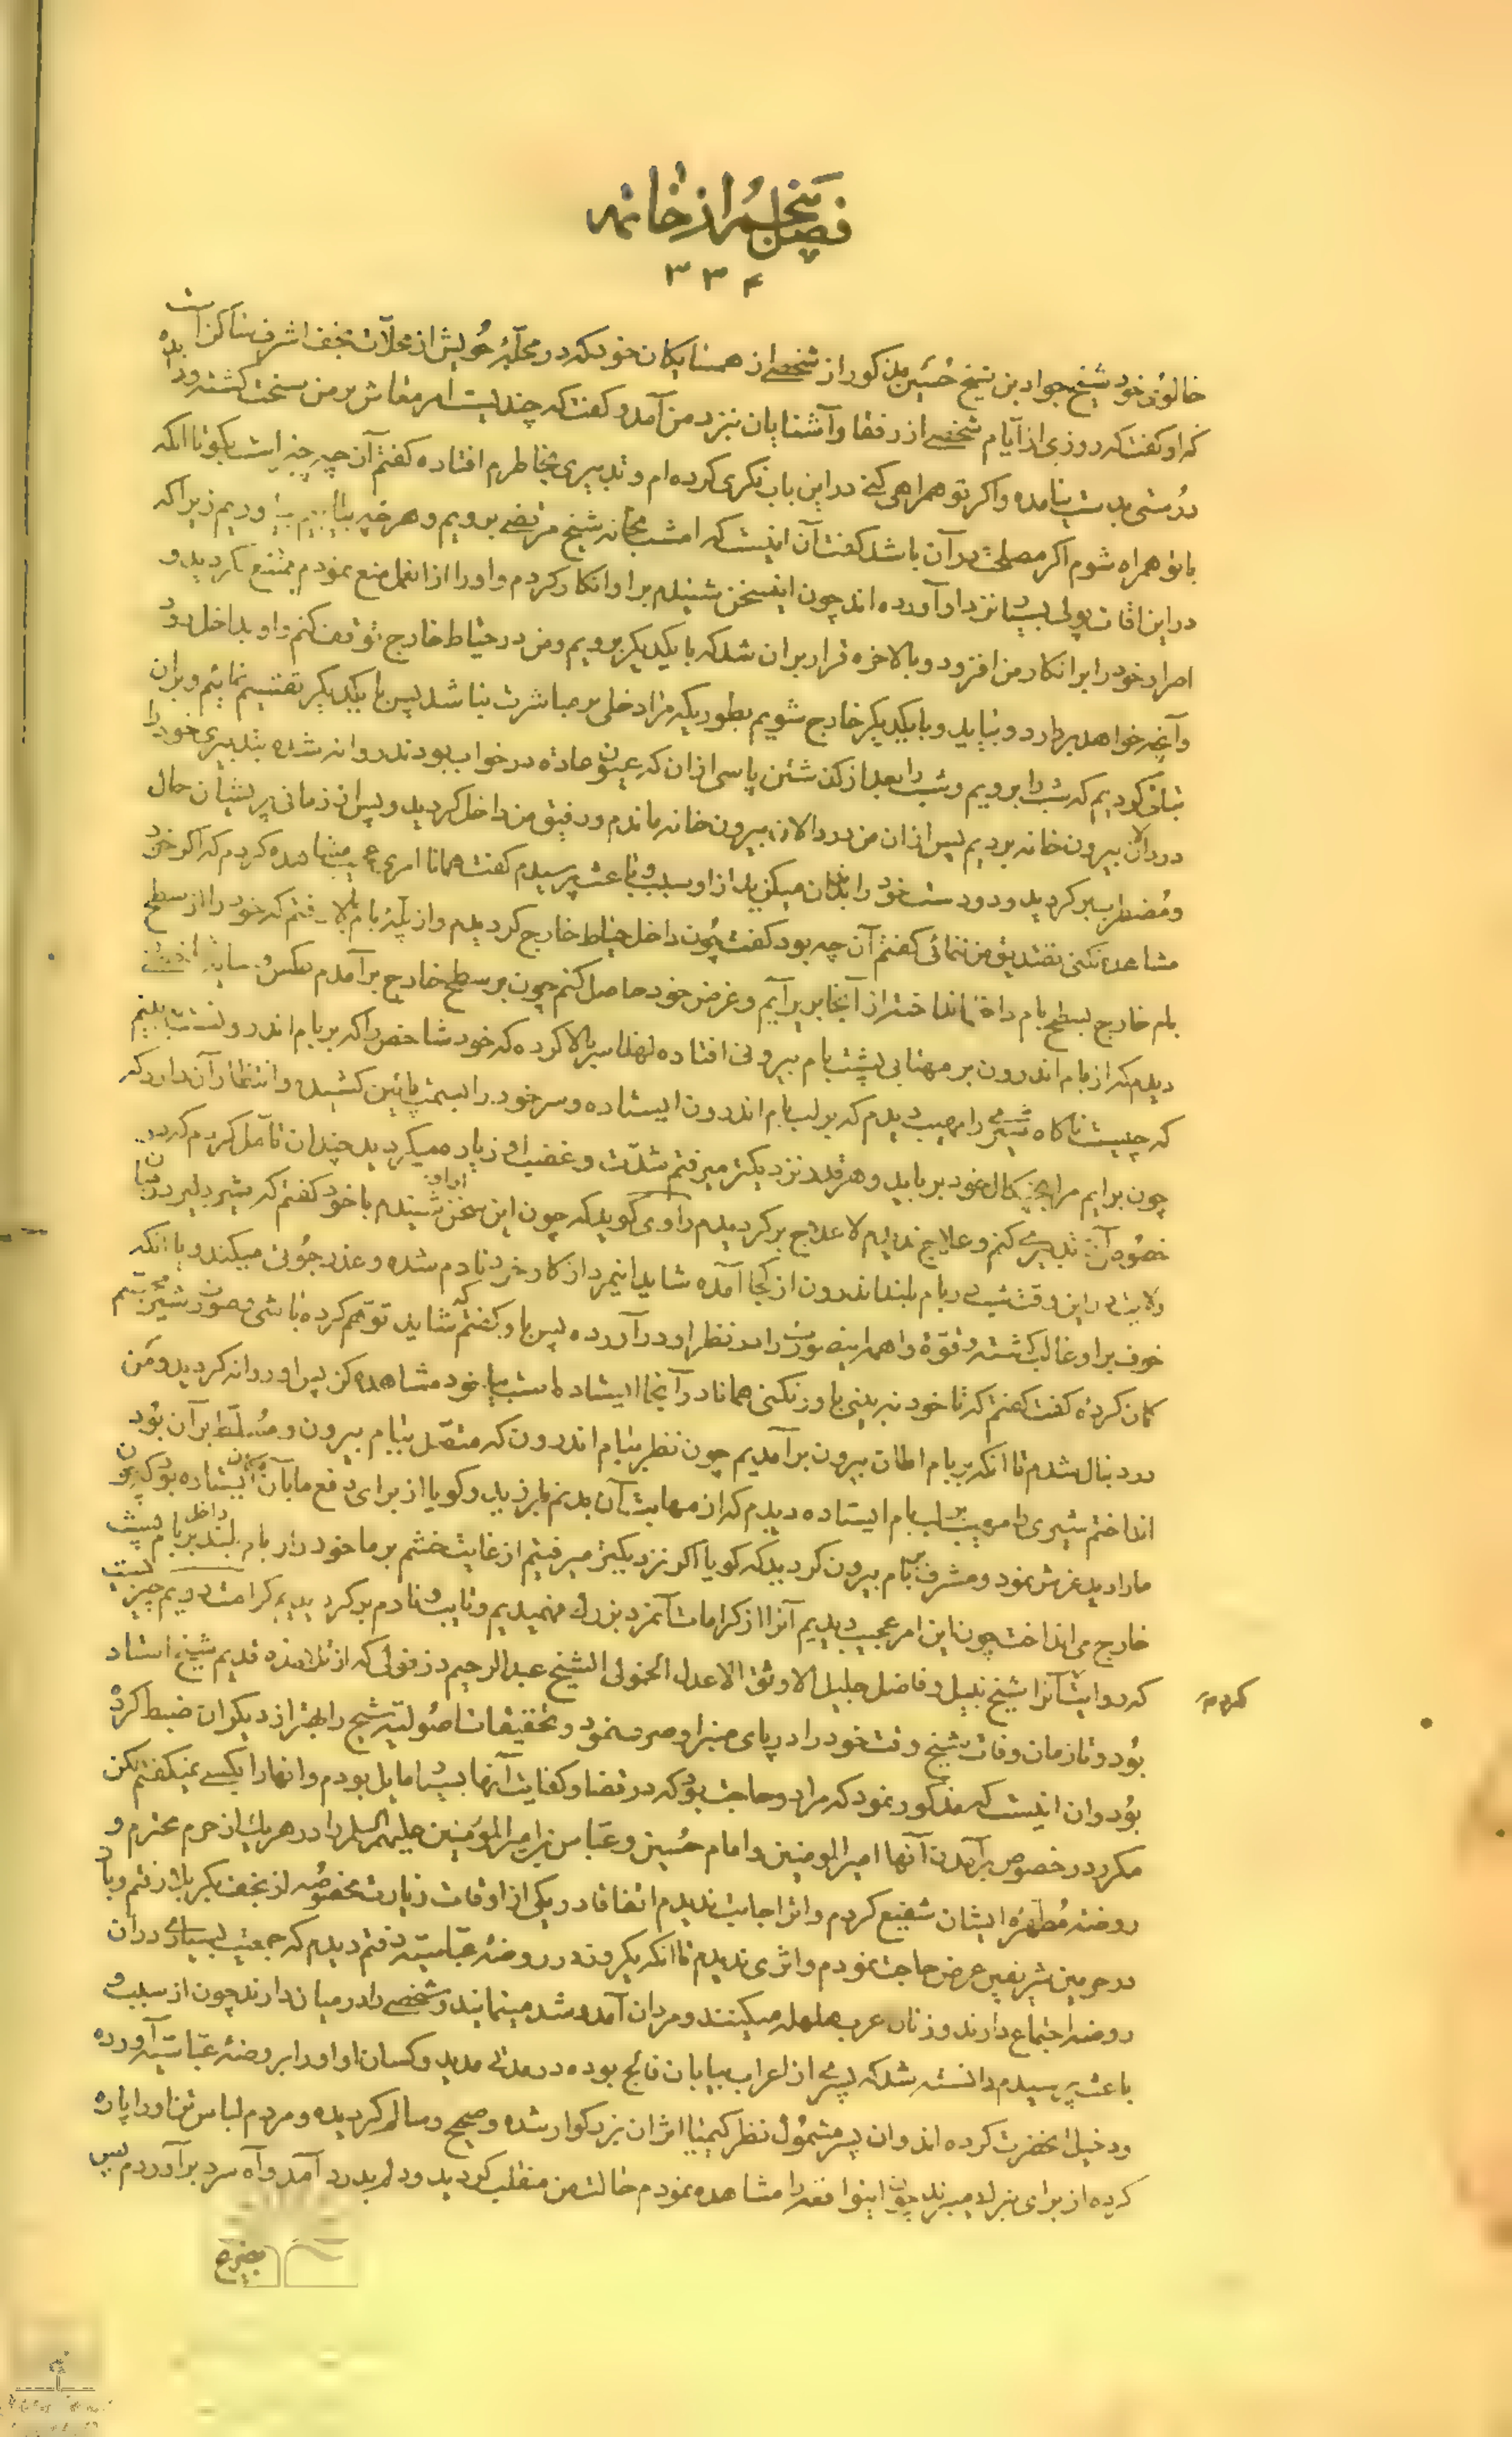 فصل پنجم از خاتمه
۳۳۴
خالوی خود شیخ جواد بن شیخ حسین مذکور از شخصی از همسایکان خود که در محلهٔ حویش از محلات نجف اشرف ساکن است
که او کفت که روزی از ایام شخصی از رفقا و آشنایان نزد من آمد و کفت که چندیست امر معاش بر من سخت کشته و
درستی بدست نیامده و اکر تو همراهی کنی در این باب فکری کرده‌ام و تدبیری بخاطرم افتاده کفتم آن چه چیز است بکو تا آنکه
با تو همراه شوم اکر مصلحت در آن باشد کفت آن اینست که امشب بخانه شیخ مرتضی برویم و هر چه بیابیم بیاوریم زیرا که
در این اوقات پولی بسیار نزد او آورده‌اند چون این سخن شنیدم بر او انکار کردم و او را از این عمل منع نمودم ممتنع نکردید و
اصرار خود را بر انکار من افزود و بالاخره قرار بر آن شد که با یکدیکر برویم و من در حیاط خارج توقف کنم و او بداخل رود
و آنچه خواهد بردارد و بیاید و با یکدیکر خارج شویم بطوریکه مرا دخلی بر مباشرت نباشد پس با یکدیکر تقسیم نمائیم و بر آن
تبانی کردیم که شب را برویم و شب را بعد از کذشتن پاسی از آن که عیون عادة در خواب بودند روانه شده بتدبیری خود را
در دالان بیرون خانه بردیم پس از آن من در دالان بیرون خانه ماندم و رفیق من داخل کردید و پس از زمانی پریشان حال
و مضطرب برکردید و دو دست خود را بدندان میکزید از او سبب و باعث پرسیدم کفت همانا امری عجیب مشاهده کردم که اکر خود
مشاهده نکنی تصدیق من ننمائی کفتم آن چه بود کفت چون داخل حیاط خارج کردیدم و از پلهٔ بام بالا رفتم که خود را از سطح
بام خارج بسطح بام داخل اندازم و از آنجا بزیر آیم و غرض خود حاصل کنم چون بر سطح خارج برآمدم
دیدم که از بام اندرون بر مهتابی پشت بام بیرونی افتاده لهذا سر بالا کرده که خود شاخص را که بر بام اندرونست ببینم
که چیست ناکاه شیری را مهیب دیدم که بر لب بام اندرون ایستاده و سر خود را بسمت پائین کشیده و انتظار آن دارد که
چون برایم مرا بچنکال خود برباید و هر قدر نزدیکتر میرفتم شدت و غضب او زیاده میکردید چندان تأمل کردم که در
خصوص آن تدبیری کنم و علاج ندیدم لا علاج برکردیدم راوی کوید که چون این سخن از او شنیدم با خود کفتم که شیر
در این وقت شب در بام بلند اندرون از کجا آمده شاید اینمرد از کار خود نادم شده و عذر جوئی میکند و یا آنکه
خوف بر او غالب کشته و قوهٔ واهمه این صورت را در نظر او در آورده پس باو کفتم که شاید توهم کرده باشی و صورت شیر مجسم
کمان کرده کفت کفتم که تا خود نه بینی باور نکنی همانا در آنجا ایستاده است بیا خود مشاهده کن پس او روانه کردید و من
در دنبال شدم تا آنکه بر بام اطاق بیرون برآمدیم چون نظر ببام اندرون که متصل ببام بیرون و مسلط بر آن بود
انداختم شیری را مهیب بر لب بام ایستاده دیدم که از مهابت آن بدنم بلرزید و کویا از برای دفع ما بآن مکان ایستاده بود که چون
ما را دید غرش نمود و مشرف بر بام بیرون کردید که کویا اکر نزدیکتر میرفتیم از غایت خشم بر ما خود را از بام بلند داخل بر بام پست
خارج می‌انداخت چون این امر عجیب دیدیم آنرا از کرامات آنمرد بزرک فهمیدیم و تایب و نادم برکردیدیم کرامت دویم چیزیست
که روایت کردم آنرا شیخ نبیل و فاضل جلیل الاوثق الاعدل المولی الشیخ عبد الرحیم دزفولی که از تلامذه قدیم شیخ استاد
بود و تا زمان وفات شیخ وقت خود را در پای منبر او صرف نمود و تحقیقات اصولیه شیخ را بهتر از دیکران ضبط کرده
بود و آن اینست که مذکور نمود که مرا دو حاجت بود که در قضا و کفایت آنها بسیار مایل بودم و آنها را بکسی نمیکفتم لکن
مکرر در خصوص برآمدن آنها امیر المومنین و امام حسین و عباس بن امیر المؤمنین علیهم السلام را در هر یک از حرم محترم و
روضه مطهرهٔ ایشان شفیع کردم و اثر اجابت ندیدم اتفاقا در یکی از اوقات زیارت مخصوصه از نجف بکربلا رفتم و باز
در حرمین شریفین عرض حاجت نمودم و اثری ندیدم تا آنکه یکروز در روضهٔ عباسیه رفتم دیدم که جمعیت بسیاری در آن
روضه اجتماع دارند و زنان عرب هلهله میکنند و مردان آمد و شد مینمایند و شخصی را در میان دارند چون از سبب و
باعث پرسیدم دانسته شد که پسری از اعراب بیابان فالج بوده در مدتی مدید و کسان او او را بروضهٔ عباسیه آورده
و دخیل آنحضرت کرده‌اند و آن پسر مشمول نظر کیمیا اثر آن بزرکوار شده و صحیح و سالم کردیده و مردم لباس تن او را پاره
کرده از برای تبرک میبرند چون اینواقعه را مشاهده نمودم حالت من منقلب کردید و دلم بدرد آمد و آه سرد برآوردم پس
بضریح